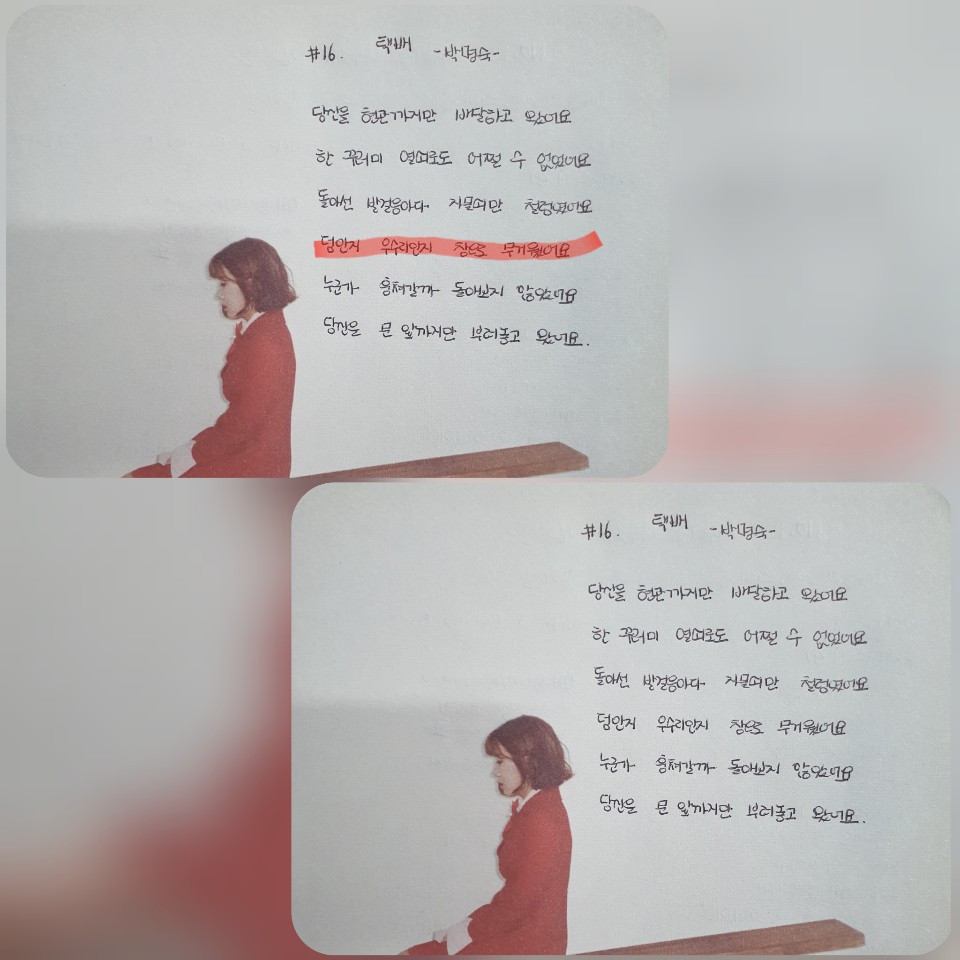 #16. 택배 -박명숙-
당신을 현관까지만 배달하고 왔어요
한 꾸러미 열쇠로도 어쩔 수 없었어요
돌아선 발걸음마다 자물쇠만 철렁였어요
덤인지 우수리인지 참으로 무거웠어요
누군가 훔쳐갈까 돌아보지 않았어요
당신을 문 앞까지만 부려놓고 왔어요.
#16. 택배 -박명숙-
당신을 현관까지만 배달하고 왔어요
한 꾸러미 열쇠로도 어쩔 수 없었어요
돌아선 발걸음마다 자물쇠만 철렁였어요
덤인지 우수리인지 참으로 무거웠어요
누군가 훔쳐갈까 돌아보지 않았어요
당신을 문 앞까지만 부려놓고 왔어요.